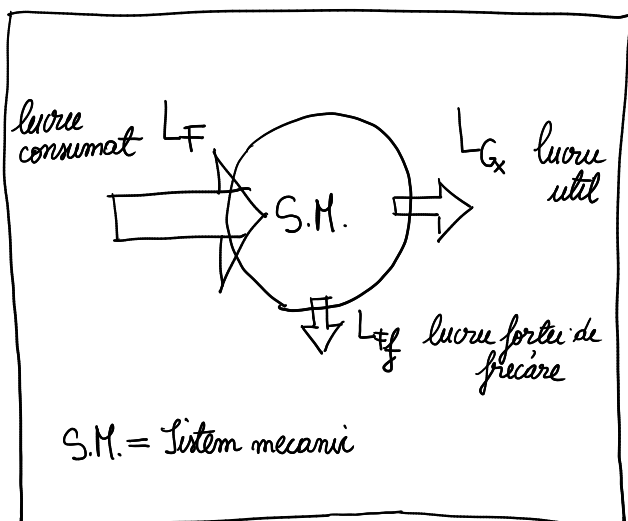 lucru
consumat L_F
L_Gx lucru
util
S.M.
L_Ff lucru forței de
frecare
S.M. = Sistem mecanic